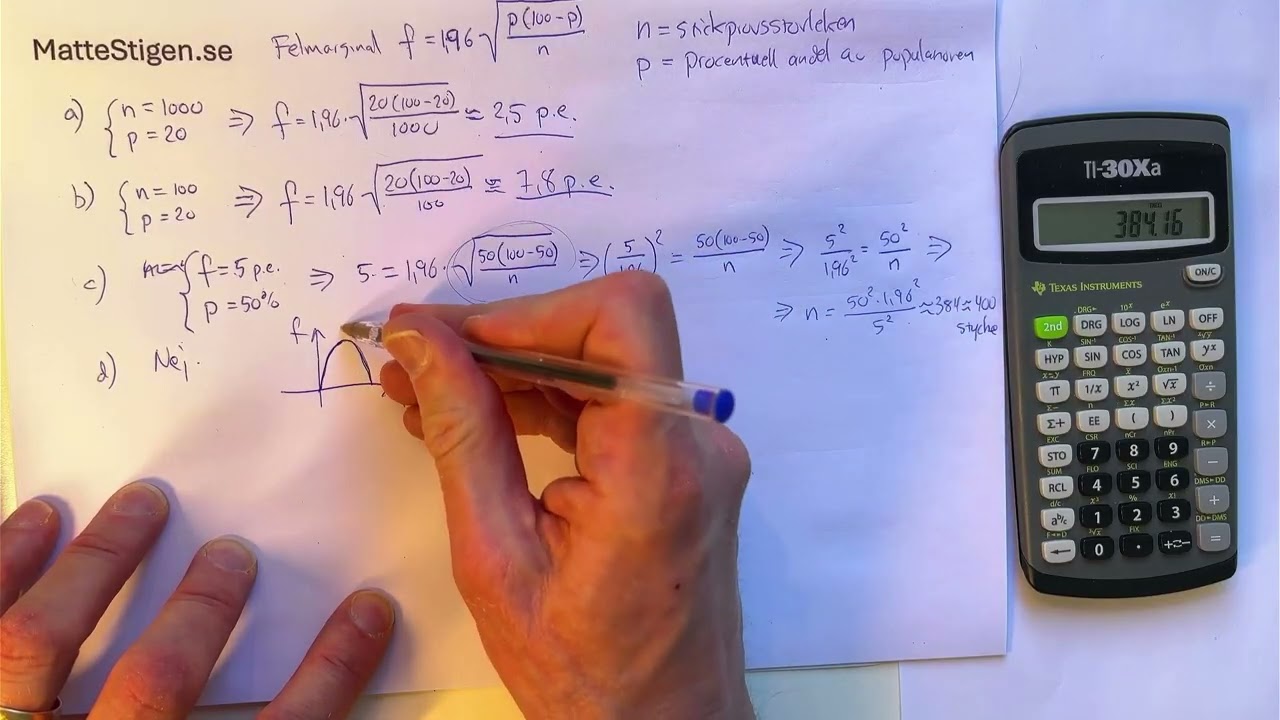 MatteStigen.se
Felmarginal f = 1,96 √(p(100-p)/n)
n = stickprovsstorleken
p = procentuell andel av populationen
a) { n = 1000 p = 20 ⇒ f = 1,96·√(20(100-20)/1000) ≈ 2,5 p.e.
b) { n = 100 p = 20 ⇒ f = 1,96 √(20(100-20)/100) ≈ 7,8 p.e.
c) { f = 5 p.e. p = 50% ⇒ 5 = 1,96·√(50(100-50)/n) ⇒ (5/1,96)² = 50(100-50)/n ⇒ 5²/1,96² = 50²/n ⇒
⇒ n = 50²·1,96²/5² ≈ 384 ≈ 400
stycke
d) Nej.
f
TI-30Xa
DEG
384.16
TEXAS INSTRUMENTS
ON/C
2nd DRG LOG LN OFF
HYP SIN COS TAN yx
π 1/x x² √x ÷
Σ+ EE ( ) ×
STO 7 8 9 −
RCL 4 5 6 +
ab/c 1 2 3 =
← 0 . +⇄−